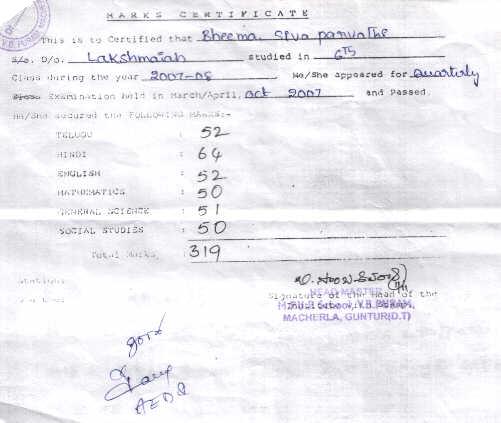 MARKS CERTIFICATE
This is to Certified that Bheema Siva parvathi
S/o. D/o. Lakshmaiah studied in 6th
Class during the year 2007-08 He/She appeared for Quarterly
Examination held in March/April, oct 2007 and Passed.
He/She secured the FOLLOWING MARKS:-
TELUGU : 52
HINDI : 64
ENGLISH : 52
MATHEMATICS : 50
GENERAL SCIENCE : 51
SOCIAL STUDIES : 50
Total Marks 319
Station:
Signature of the Head of the
HEAD MASTER
MACHERLA, GUNTUR(D.T)